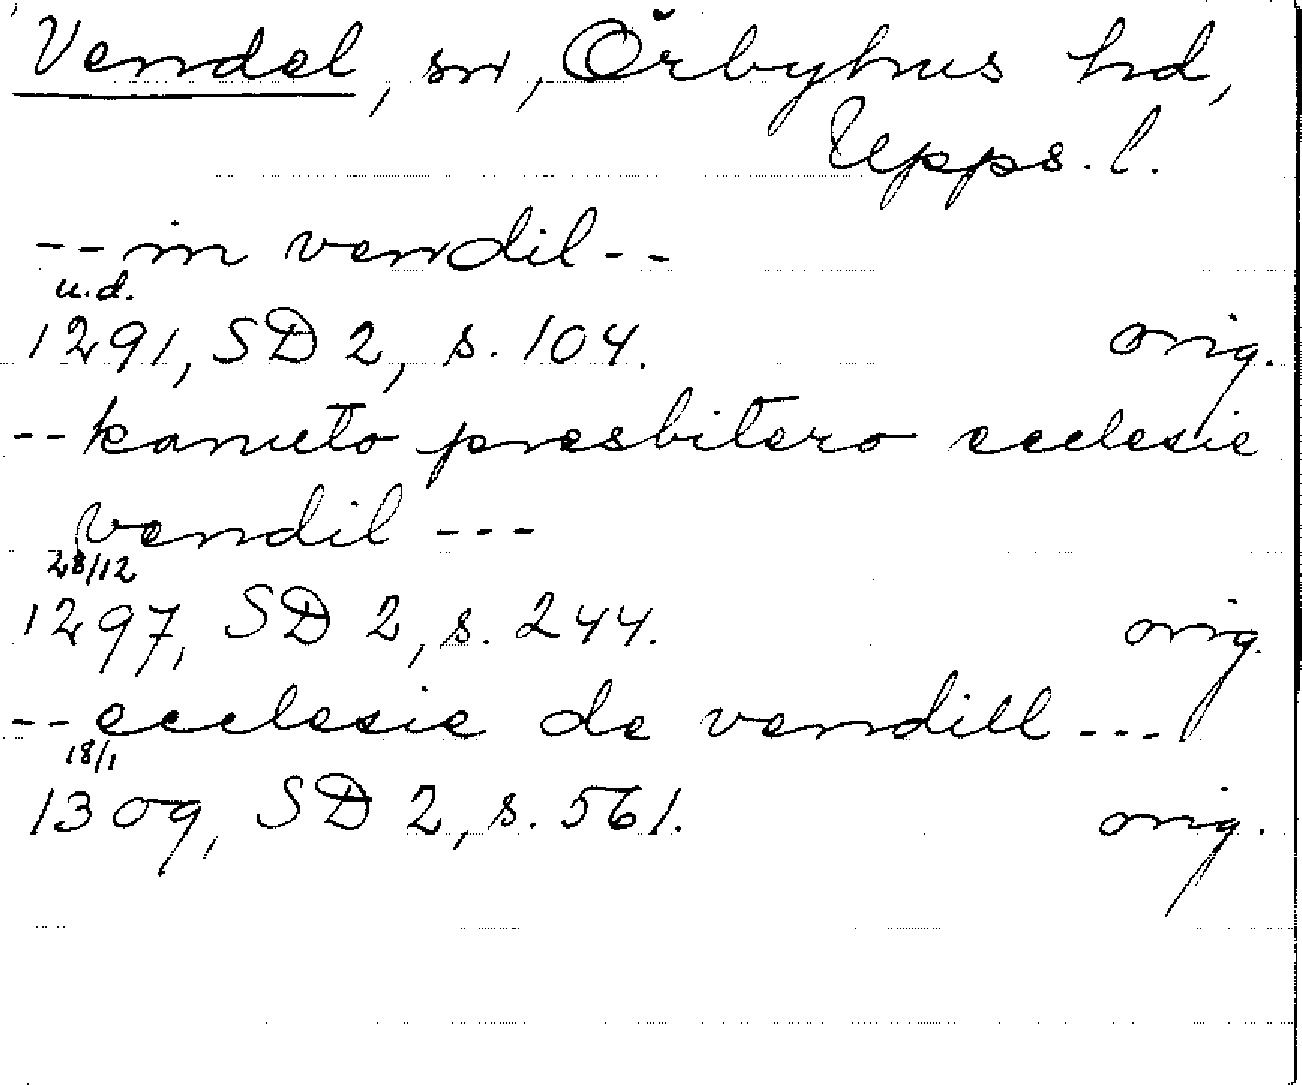 Vendel, sn, Örbyhus hd,
Upps. l.
-- in vendil --
u.d.
1291, SD 2, s. 104. orig.
-- kanuto presbitero ecclesie
vendil ---
28/12
1297, SD 2, s. 244. orig.
-- ecclesie de vendill ---
18/1
1309, SD 2, s. 561. orig.